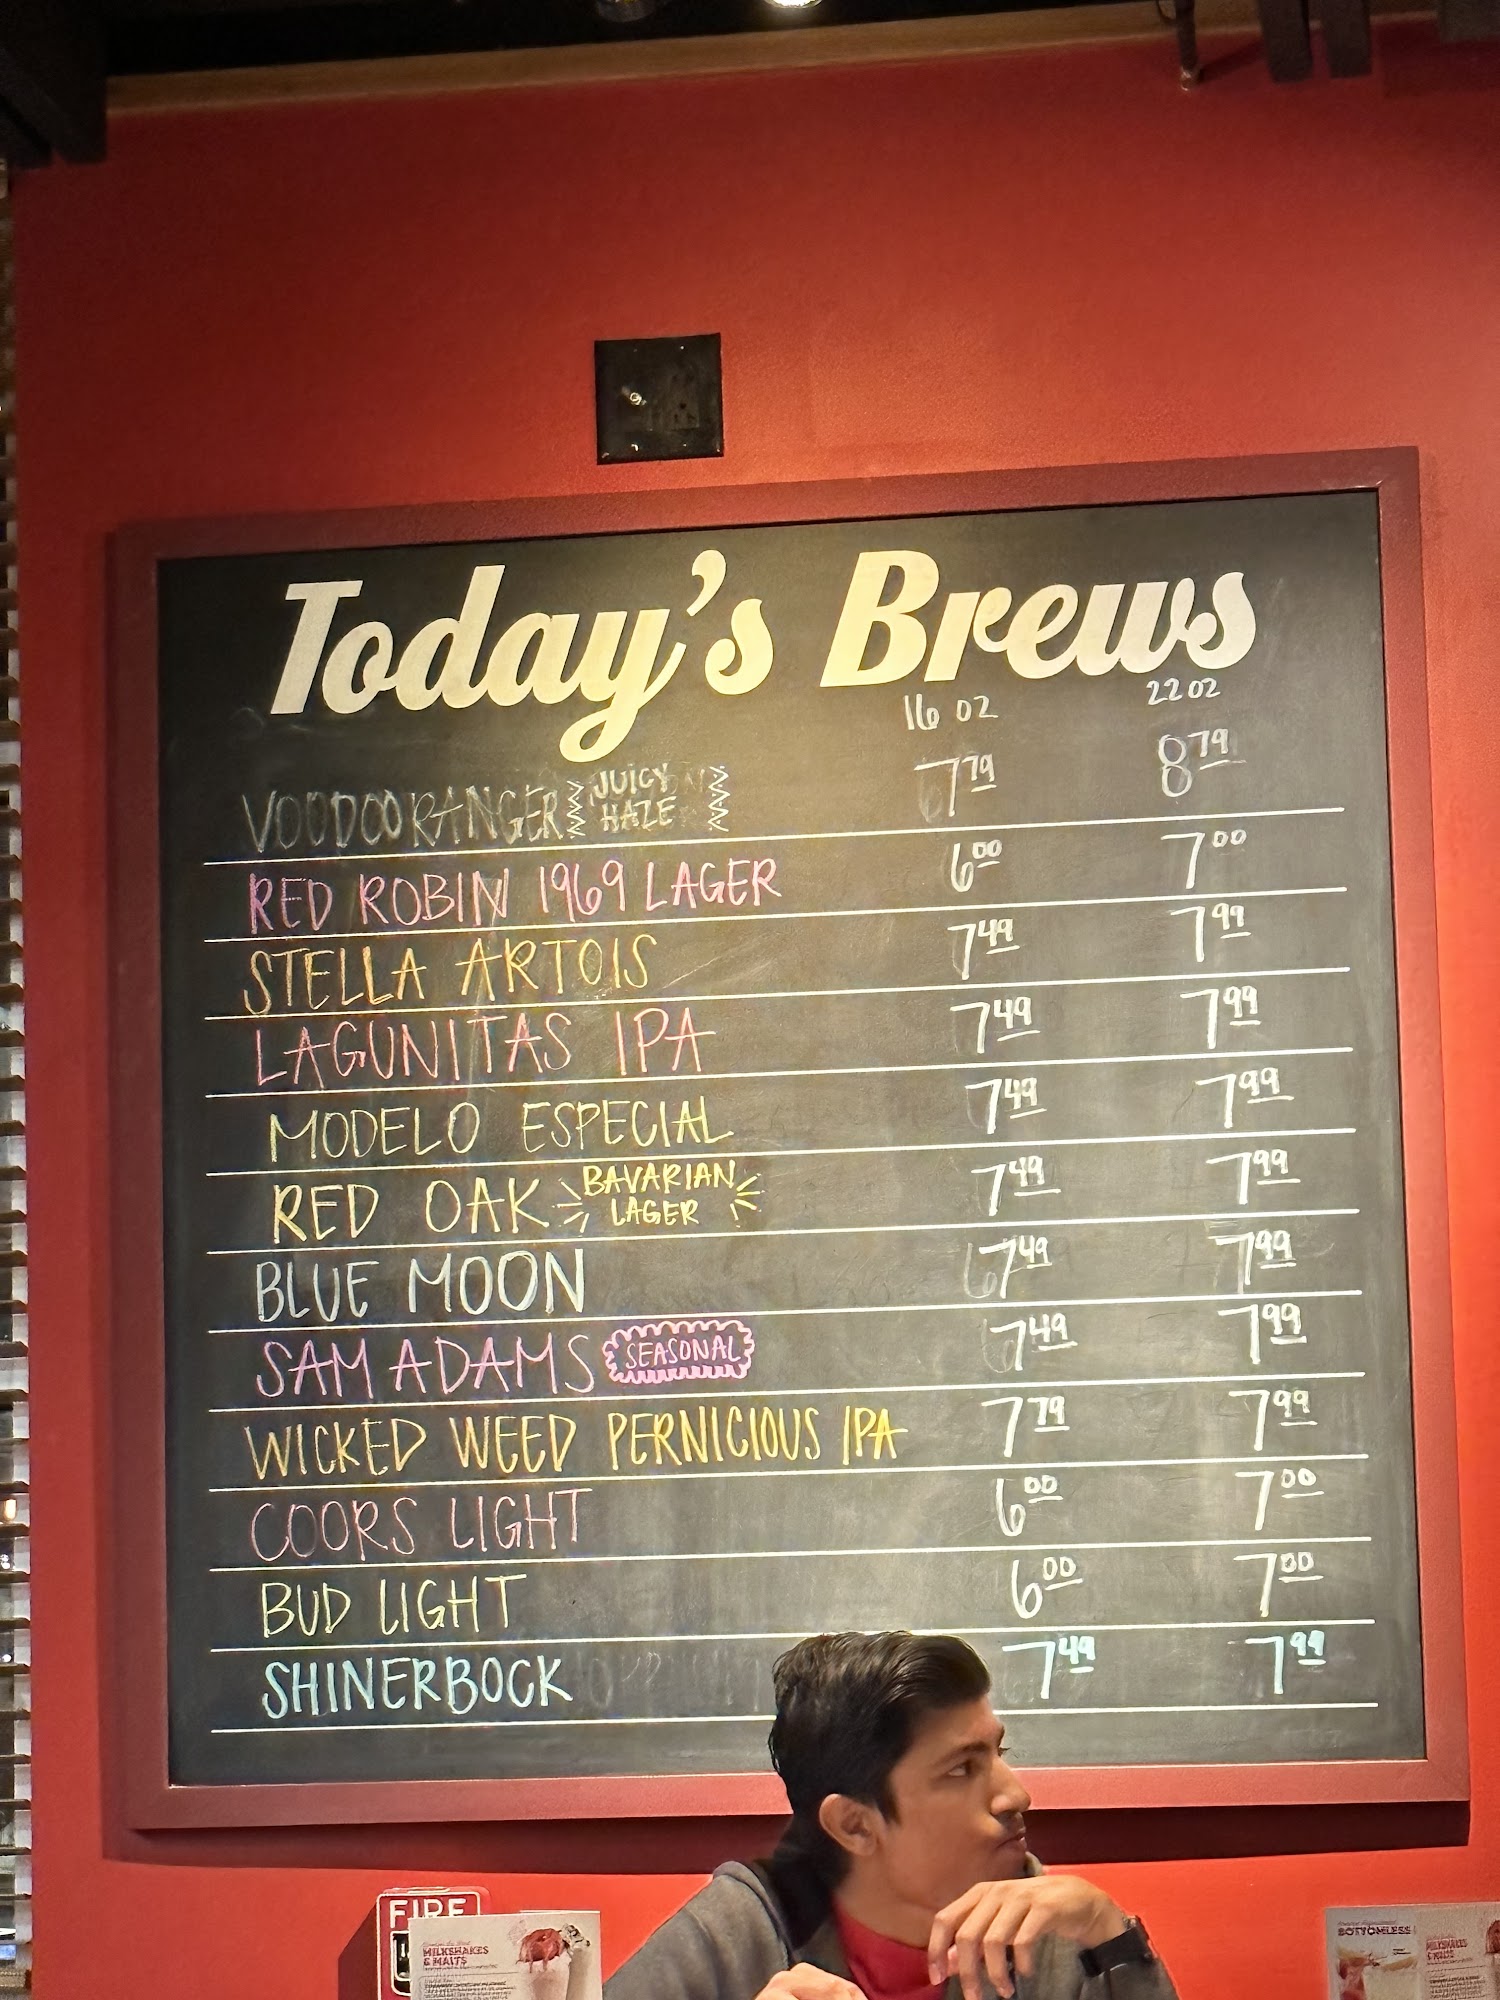 Today's Brews
16 OZ 22 OZ
VOODOO RANGER JUICY HAZE 7.79 8.79
RED ROBIN 1969 LAGER 6.00 7.00
STELLA ARTOIS 7.49 7.99
LAGUNITAS IPA 7.49 7.99
MODELO ESPECIAL 7.49 7.99
RED OAK BAVARIAN LAGER 7.49 7.99
BLUE MOON 7.49 7.99
SAM ADAMS SEASONAL 7.49 7.99
WICKED WEED PERNICIOUS IPA 7.79 7.99
COORS LIGHT 6.00 7.00
BUD LIGHT 6.00 7.00
SHINERBOCK 7.49 7.99
FIRE
MILKSHAKES
& MALTS
BOTTOMLESS
MILKSHAKES
& MALTS